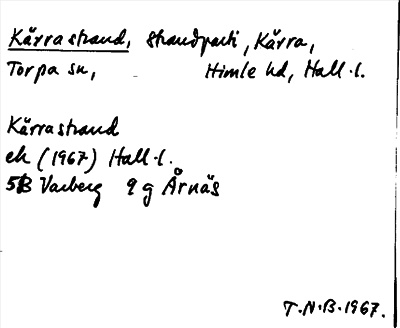 Kärrastrand, strandparti, Kärra,
Torpa sn, Himle hd, Hall.l.
Kärrastrand
ek (1967) Hall.l.
5B Varberg 9 g Årnäs
T.N.B.1967.